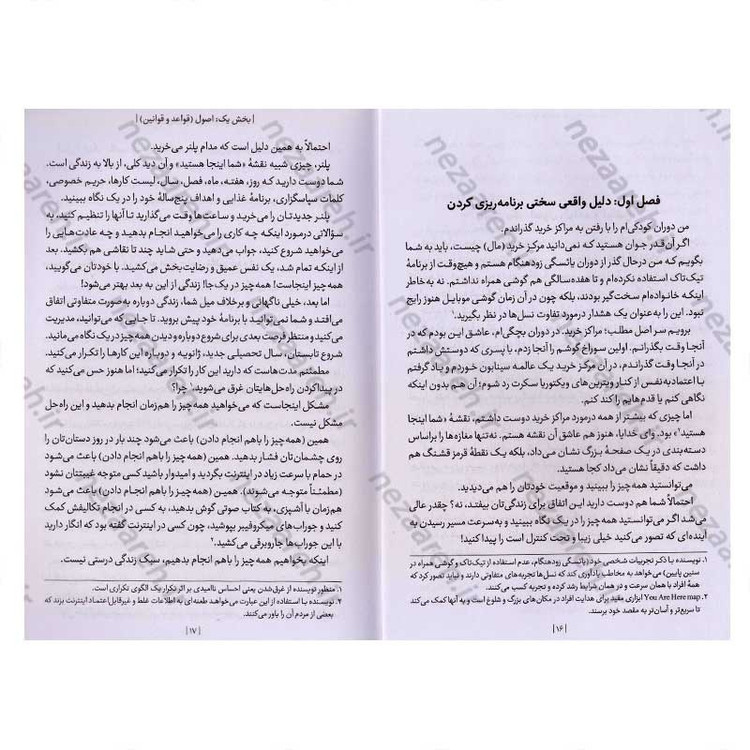 فصل اول: دلیل واقعی سختی برنامه‌ریزی کردن
من دوران کودکی‌ام را با رفتن به مراکز خرید گذراندم.
اگر آن‌قدر جوان هستید که نمی‌دانید مرکز خرید (مال) چیست، باید به شما
بگویم که من درحال گذر از دوران یائسگی زودهنگام هستم و هیچ‌وقت از برنامهٔ
تیک‌تاک استفاده نکرده‌ام و تا هفده‌سالگی هم گوشی همراه نداشتم. نه به خاطر
اینکه خانواده‌ام سخت‌گیر بودند، بلکه چون در آن زمان گوشی موبایل هنوز رایج
نبود. این را به‌عنوان یک هشدار درمورد تفاوت نسل‌ها در نظر بگیرید.۱
برویم سر اصل مطلب؛ مراکز خرید. در دوران بچگی‌ام، عاشق این بودم که در
آنجا وقت بگذرانم. اولین سوراخ گوشم را آنجا زدم، با پسری که دوستش داشتم
در آنجا وقت گذراندم، در آن مرکز خرید یک عالمه سینابون خوردم و یاد گرفتم
با اعتمادبه‌نفس از کنار ویترین‌های ویکتوریا سکرت رد شوم؛ آن هم بدون اینکه
نگاهی کنم یا قدم‌هایم را کند کنم.
اما چیزی که بیشتر از همه درمورد مراکز خرید دوست داشتم، نقشهٔ «شما اینجا
هستید»۲ بود. وای خدایا، هنوز هم عاشق آن نقشه هستم. نه‌تنها مغازه‌ها را براساس
دسته‌بندی در یک صفحهٔ بزرگ نشان می‌داد، بلکه یک نقطهٔ قرمز قشنگ هم
داشت که دقیقاً نشان می‌داد کجا هستید.
می‌توانستید همه‌چیز را ببینید و موقعیت خودتان را هم می‌دیدید.
احتمالاً شما هم دوست دارید این اتفاق برای زندگی‌تان بیفتد، نه؟ چقدر عالی
می‌شد اگر می‌توانستید همه‌چیز را در یک نگاه ببینید و به‌سرعت مسیر رسیدن به
آینده‌ای که تصور می‌کنید خیلی زیبا و تحت کنترل است را پیدا کنید!
۱. نویسنده با ذکر تجربیات شخصی خود (یائسگی زودهنگام، عدم استفاده از تیک‌تاک و گوشی همراه در
سنین پایین) می‌خواهد به مخاطب یادآوری کند که نسل‌ها تجربه‌های متفاوتی دارند و نباید تصور کرد که
همهٔ افراد با همان سرعت و در همان شرایط رشد کرده و تجربه کسب می‌کنند.
۲. You Are Here map ابزاری مفید برای هدایت افراد در مکان‌های بزرگ و شلوغ است و به آنها کمک می‌کند
تا سریع‌تر و آسان‌تر به مقصد خود برسند.
|۱۶|
|بخش یک: اصول (قواعد و قوانین)|
احتمالاً به همین دلیل است که مدام پلنر می‌خرید.
پلنر، چیزی شبیه نقشهٔ «شما اینجا هستید» و آن دید کلی، از بالا به زندگی است.
شما دوست دارید که روز، هفته، ماه، فصل، سال، لیست کارها، حریم خصوصی،
کلمات سپاسگزاری، برنامهٔ غذایی و اهداف پنج‌سالهٔ خود را در یک نگاه ببینید.
پلنر جدیدتان را می‌خرید و ساعت‌ها وقت می‌گذارید تا آنها را تنظیم کنید، به
سؤالاتی درمورد اینکه چه کاری را می‌خواهید انجام بدهید و چه عادت‌هایی را
می‌خواهید شروع کنید، جواب می‌دهید و حتی شاید چند تا نقاشی هم بکشید. بعد
از اینکه تمام شد، یک نفس عمیق و رضایت‌بخش می‌کشید. با خودتان می‌گویید،
همه‌چیز اینجاست! همه‌چیز در یک جا! زندگی از این به بعد بهتر می‌شود!
اما بعد، خیلی ناگهانی و برخلاف میل شما، زندگی دوباره به‌صورت متفاوتی اتفاق
می‌افتد و شما نمی‌توانید با برنامهٔ خود پیش بروید. تا جایی که می‌توانید، مدیریت
می‌کنید و منتظر فرصت بعدی برای شروع دوباره و دیدن همه‌چیز در یک نگاه می‌مانید.
شروع تابستان، سال تحصیلی جدید، ژانویه و دوباره این کارها را تکرار می‌کنید.
مطمئنم مدت‌هاست که دارید این کار را تکرار می‌کنید؛ اما هنوز حس می‌کنید که
در پیدا کردن راه‌حل‌هایتان غرق می‌شوید.۱ چرا؟
مشکل اینجاست که می‌خواهید همه‌چیز را هم‌زمان انجام بدهید و این راه‌حل
مشکل نیست.
همین (همه‌چیز را باهم انجام دادن) باعث می‌شود چند بار در روز دستان‌تان را
روی چشمان‌تان فشار بدهید. همین (همه‌چیز را باهم انجام دادن) باعث می‌شود
در حمام با سرعت زیاد در اینترنت بگردید و امیدوار باشید کسی متوجه غیبتتان نشود
(مطمئناً متوجه می‌شوند). همین (همه‌چیز را باهم انجام دادن) باعث می‌شود
هم‌زمان با آشپزی، به کتاب صوتی گوش بدهید، به کسی در انجام تکالیفش کمک
کنید و جوراب‌های میکروفیبر بپوشید، چون کسی در اینترنت گفته بود که انگار دارید
با این جوراب‌ها جاروبرقی می‌کشید.۲
اینکه بخواهیم همه‌چیز را باهم انجام بدهیم، سبک زندگی درستی نیست.
۱. منظور نویسنده از غرق‌شدن یعنی احساس ناامیدی بر اثر تکرار یک الگوی تکراری است.
۲. نویسنده با استفاده از این عبارت می‌خواهد طعنه‌ای به اطلاعات غلط و غیرقابل‌اعتماد اینترنت بزند که
بعضی از مردم آن را باور می‌کنند.
|۱۷|
nezaareh.ir